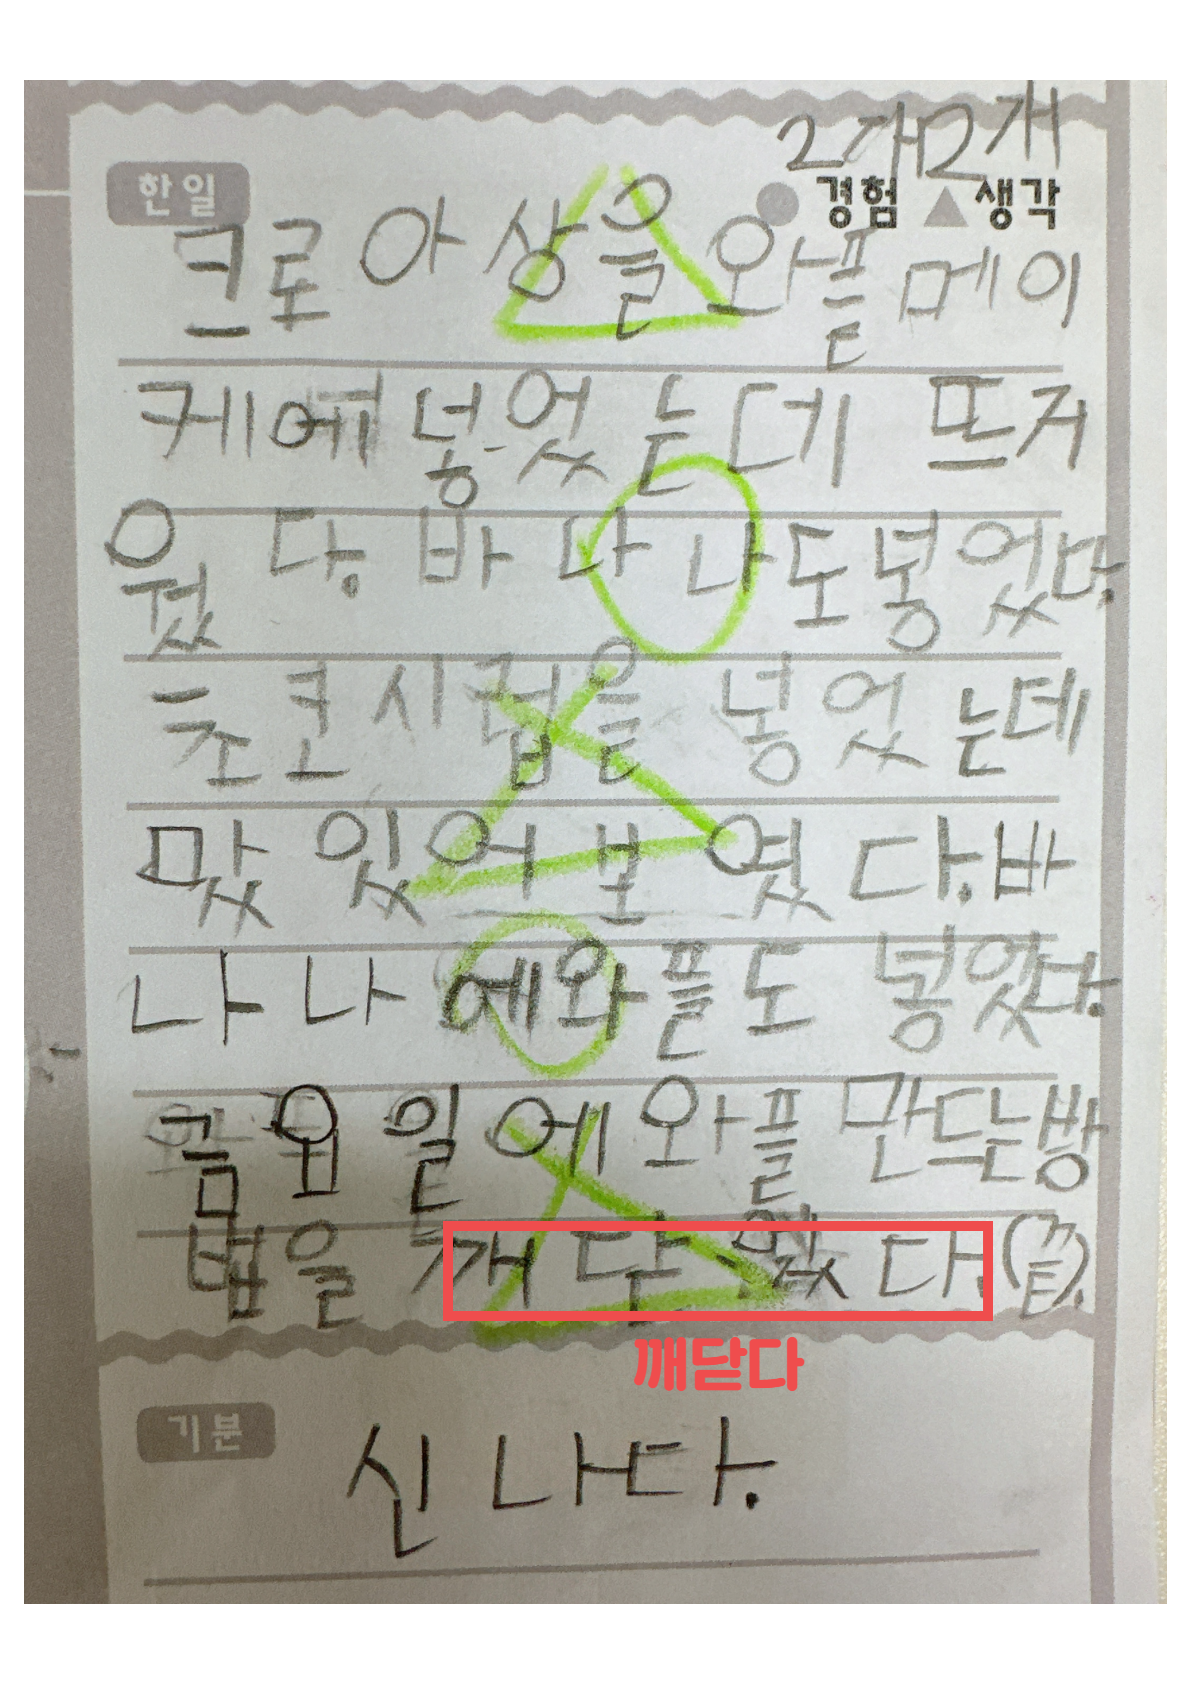 2개 2개
한일 경험 생각
크로아상을 와플메이
케에 넣었는데 뜨거
웠다. 바다나도 넣었다.
초코시럽을 넣었는데
맜있어 보였다. 바
나나에 와플도 넣었다.
금요일에 와플 만드는 방
법을 깨단었다. (끝).
깨닫다
기분
신나다.